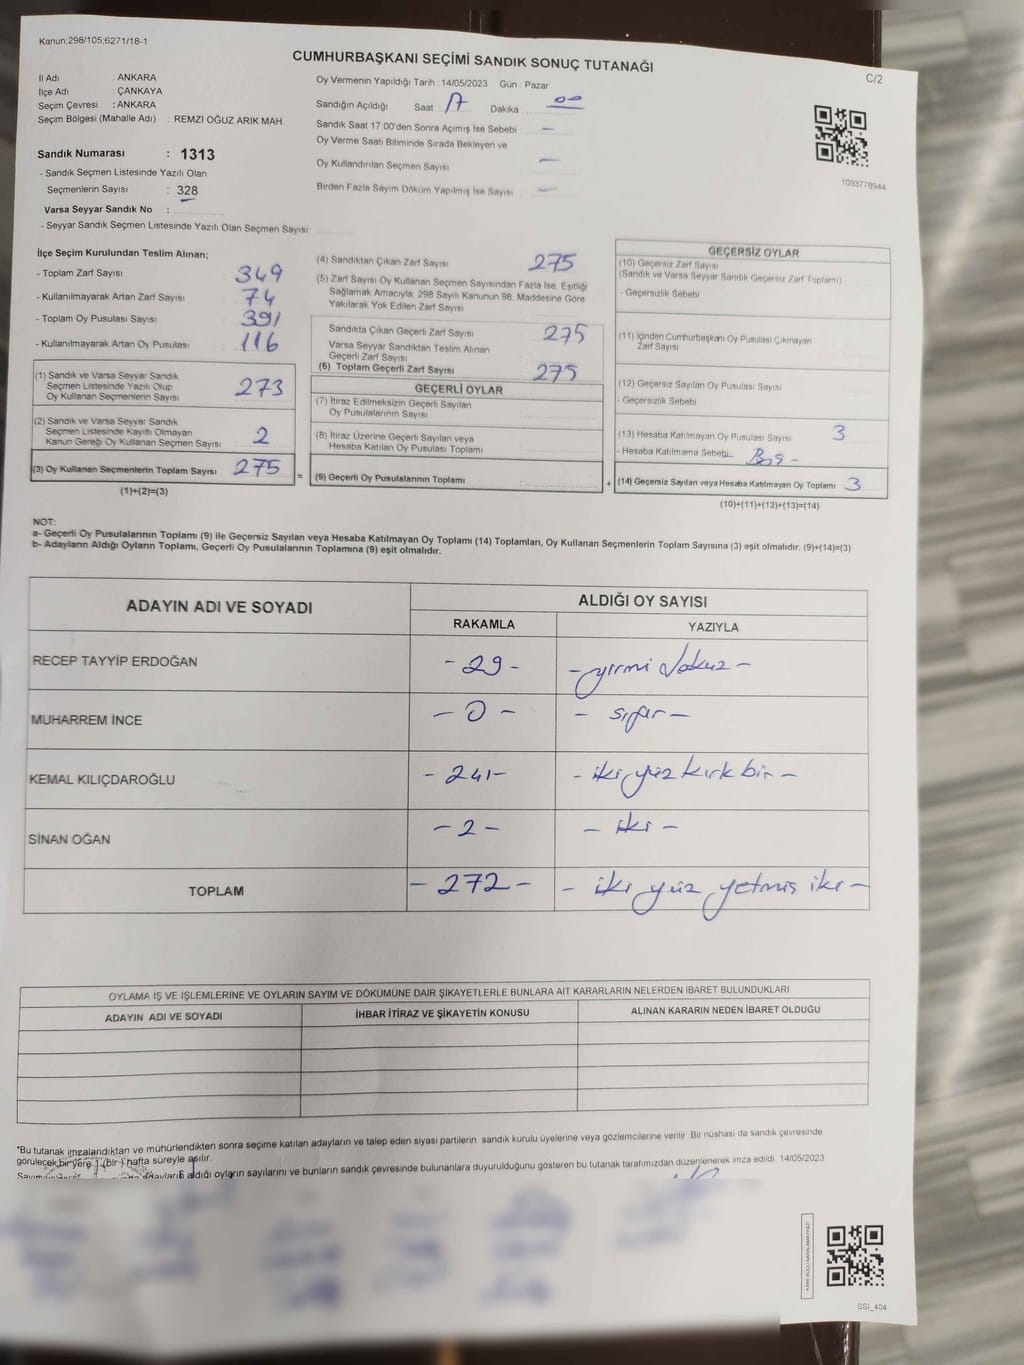 Kanun;298/105;6271/18-1
CUMHURBAŞKANI SEÇİMİ SANDIK SONUÇ TUTANAĞI
C/2
İl Adı : ANKARA
İlçe Adı : ÇANKAYA
Seçim Çevresi : ANKARA
Seçim Bölgesi (Mahalle Adı) : REMZİ OĞUZ ARIK MAH.
Sandık Numarası : 1313
- Sandık Seçmen Listesinde Yazılı Olan
Seçmenlerin Sayısı : 328
Varsa Seyyar Sandık No :
- Seyyar Sandık Seçmen Listesinde Yazılı Olan Seçmen Sayısı:
Oy Vermenin Yapıldığı Tarih : 14/05/2023 Gün : Pazar
Sandığın Açıldığı Saat : 17 Dakika : 00
Sandık Saat 17:00'den Sonra Açımış İse Sebebi : —
Oy Verme Saati Bitiminde Sırada Bekleyen ve
Oy Kullandırılan Seçmen Sayısı : —
Birden Fazla Sayım Döküm Yapılmış İse Sayısı : —
1093778944
İlçe Seçim Kurulundan Teslim Alınan;
- Toplam Zarf Sayısı 349
- Kullanılmayarak Artan Zarf Sayısı 74
- Toplam Oy Pusulası Sayısı 391
- Kullanılmayarak Artan Oy Pusulası 116
(1) Sandık ve Varsa Seyyar Sandık
Seçmen Listesinde Yazılı Olup
Oy Kullanan Seçmenlerin Sayısı 273
(2) Sandık ve Varsa Seyyar Sandık
Seçmen Listesinde Kayıtlı Olmayan
Kanun Gereği Oy Kullanan Seçmen Sayısı 2
(3) Oy Kullanan Seçmenlerin Toplam Sayısı 275
(1)+(2)=(3)
(4) Sandıktan Çıkan Zarf Sayısı 275
(5) Zarf Sayısı Oy Kullanan Seçmen Sayısından Fazla İse, Eşitliği
Sağlamak Amacıyla, 298 Sayılı Kanunun 98. Maddesine Göre
Yakılarak Yok Edilen Zarf Sayısı
Sandıkta Çıkan Geçerli Zarf Sayısı 275
Varsa Seyyar Sandıktan Teslim Alınan
Geçerli Zarf Sayısı
(6) Toplam Geçerli Zarf Sayısı 275
GEÇERLİ OYLAR
(7) İtiraz Edilmeksizin Geçerli Sayılan
Oy Pusulalarının Sayısı
(8) İtiraz Üzerine Geçerli Sayılan veya
Hesaba Katılan Oy Pusulaları Toplamı
= (9) Geçerli Oy Pusulalarının Toplamı :
GEÇERSİZ OYLAR
(10) Geçersiz Zarf Sayısı
(Sandık ve Varsa Seyyar Sandık Geçersiz Zarf Toplamı)
- Geçersizlik Sebebi
(11) İçinden Cumhurbaşkanı Oy Pusulası Çıkmayan
Zarf Sayısı
(12) Geçersiz Sayılan Oy Pusulası Sayısı
- Geçersizlik Sebebi
(13) Hesaba Katılmayan Oy Pusulası Sayısı 3
- Hesaba Katılmama Sebebi Boş -
+ (14) Geçersiz Sayılan veya Hesaba Katılmayan Oy Toplamı 3
(10)+(11)+(12)+(13)=(14)
NOT:
a- Geçerli Oy Pusulalarının Toplamı (9) ile Geçersiz Sayılan veya Hesaba Katılmayan Oy Toplamı (14) Toplamları, Oy Kullanan Seçmenlerin Toplam Sayısına (3) eşit olmalıdır. (9)+(14)=(3)
b- Adayların Aldığı Oyların Toplamı, Geçerli Oy Pusulalarının Toplamına (9) eşit olmalıdır.
ADAYIN ADI VE SOYADI
ALDIĞI OY SAYISI
RAKAMLA YAZIYLA
RECEP TAYYİP ERDOĞAN - 29 - - yirmi dokuz -
MUHARREM İNCE - 0 - - sıfır -
KEMAL KILIÇDAROĞLU - 241 - - iki yüz kırk bir -
SİNAN OĞAN - 2 - - iki -
TOPLAM - 272 - - iki yüz yetmiş iki -
OYLAMA İŞ VE İŞLEMLERİNE VE OYLARIN SAYIM VE DÖKÜMÜNE DAİR ŞİKAYETLERLE BUNLARA AİT KARARLARIN NELERDEN İBARET BULUNDUKLARI
ADAYIN ADI VE SOYADI İHBAR İTİRAZ VE ŞİKAYETİN KONUSU ALINAN KARARIN NEDEN İBARET OLDUĞU
*Bu tutanak imzalandıktan ve mühürlendikten sonra seçime katılan adayların ve talep eden siyasi partilerin sandık kurulu üyelerine veya gözlemcilerine verilir. Bir nüshası da sandık çevresinde
görülecek bir yere 1 (bir) hafta süreyle asılır.
aldığı oyların sayılarını ve bunların sandık çevresinde bulunanlara duyurulduğunu gösteren bu tutanak tarafımızdan düzenlenerek imza edildi. 14/05/2023
SSI_404